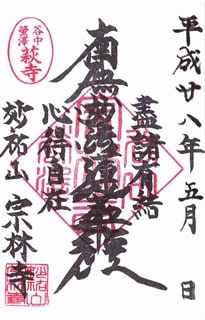 平成廿八年五月 日
盡諸有結
南無妙法蓮華経
心得自在
谷中
螢澤
萩寺
妙祐山 宗林寺